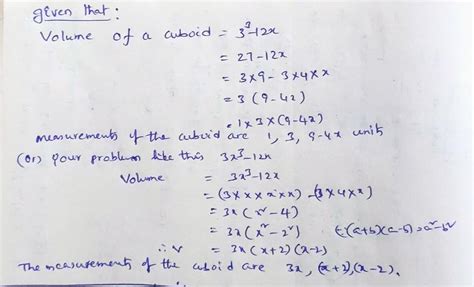 given that :
Volume of a cuboid = 3³-12x
= 27-12x
= 3x9 - 3x4xx
= 3 (9-4x)
= 1x3x(9-4x)
measurements of the cuboid are 1, 3, 9-4x units
(Or) your problem like this 3x³-12x
Volume = 3x³-12x
= (3xxxxxx) - (3x4xx)
= 3x (x²-4)
= 3x (x²-2²) (∵(a+b)(a-b)=a²-b²
∴ V = 3x (x+2) (x-2)
The measurements of the cuboid are 3x, (x+2),(x-2).